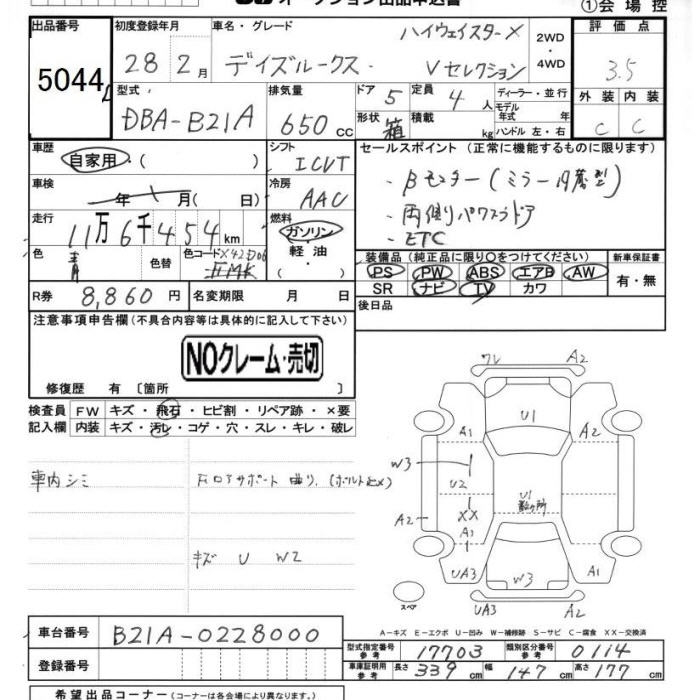 オークション出品申込書
①会場控
出品番号 初度登録年月 車名・グレード ハイウェイスターX 2WD・4WD 評価点
5044 28年2月 デイズルークス Vセレクション 3.5
型式 排気量 ドア 5 定員 4人 ディーラー・並行 外装 内装
DBA-B21A 650cc 形状 箱 積載 kg モデル年式 年式 ハンドル 左・右 C C
車歴 自家用・( ) シフト ICVT セールスポイント (正常に機能するものに限ります)
車検 年 月( 日) 冷房 AAC ・Bモニター(ミラー内蔵型)
走行 11万6千454km 燃料 ガソリン・軽油・( ) ・両側パワスラドア
・ETC
色 青 色替 色コード X42D06 装備品 (純正品に限り○をつけてください) 新車保証書
PS PW ABS エアB AW 有・無
R券 8,860円 名変期限 月 日 SR ナビ TV カワ
注意事項申告欄 (不具合内容等は具体的に記入して下さい) 後日品
NOクレーム・売切
修復歴 有 〔箇所 〕
検査員 FW キズ・飛石・ヒビ割・リペア跡・×要
記入欄 内装 キズ・汚レ・コゲ・穴・スレ・キレ・破レ
車内シミ
キズ U W2
ワレ A2
U1
A1 A2
W3
U2
U1
XX
A2
A1
UA3 W3 A1
スペア UA3 A2
A-キズ E-エクボ U-凹み W-補修跡 S-サビ C-腐食 XX-交換済
車台番号 B21A-0228000
型式指定番号 参考 17703 類別区分番号 参考 0114
登録番号
車庫証明用 参考 長さ 339cm 幅 147cm 高さ 177cm
希望出品コーナー (コーナーは各会場により異なります)